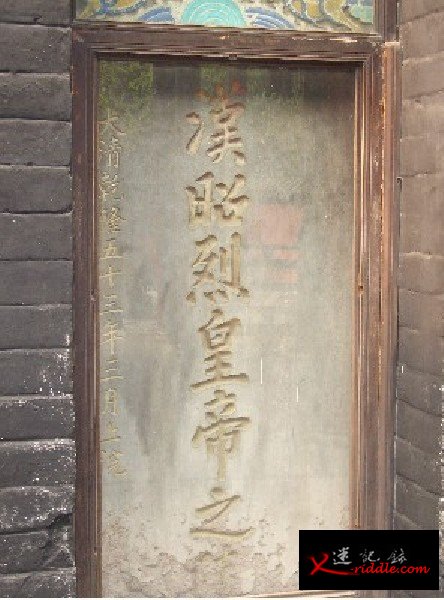 漢昭烈皇帝之
大清乾隆五十三年三月上浣
迷記錄
X-riddle.com